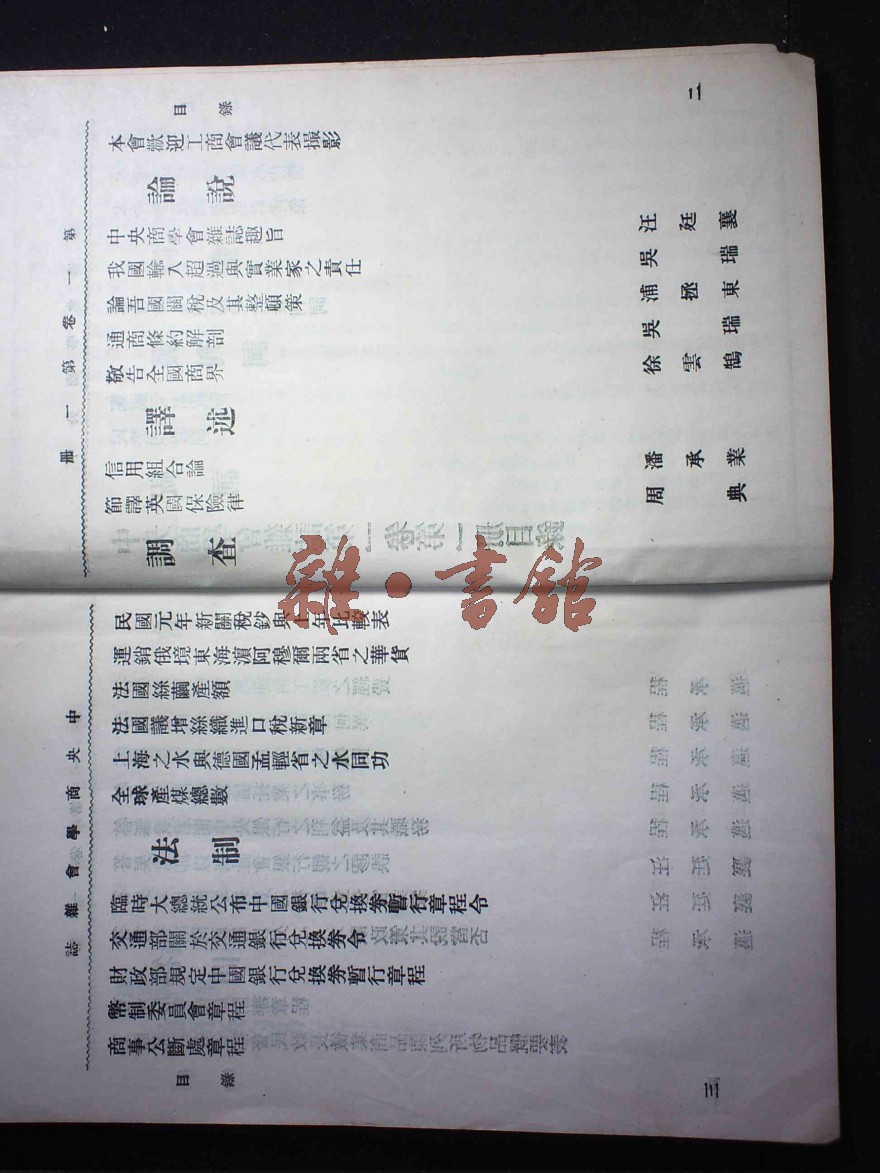 目錄
二
第一卷第一册
本會歡迎工商會議代表撮影
論說
中央商學會雜誌趣旨 汪廷襄
我國輸入超過與實業家之責任 吳瑞
論吾國關稅及其整頓策 浦拯東
通商條約解剖 吳瑞
敬告全國商界 徐雲鵠
譯述
信用組合論 潘承業
節譯英國保險律 周典
調查
雜·書館
中央商學會雜誌
民國元年新關稅鈔與上年比較表
運銷俄境東海濵阿穆爾兩省之華貨
法國絲繭產額
法國議增絲織進口稅新章
上海之水與德國孟輕省之水同功
全球產煤總數
法制
臨時大總統公布中國銀行兌換券暫行章程令
交通部關於交通銀行兌換券令
財政部規定中國銀行兌換券暫行章程
幣制委員會章程
商事公斷處章程
目錄
三